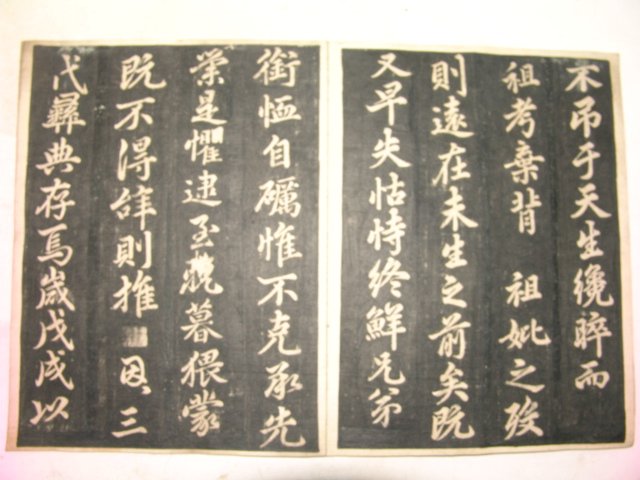 不吊于天生纔晬而
祖考棄背 祖妣之歿
則遠在未生之前矣既
又早失怙恃終鮮兄弟
銜恤自礪惟不克承先
業是懼逮至耄暮猥蒙
既不得辭則推 因三
代彝典存焉歲戊戌以